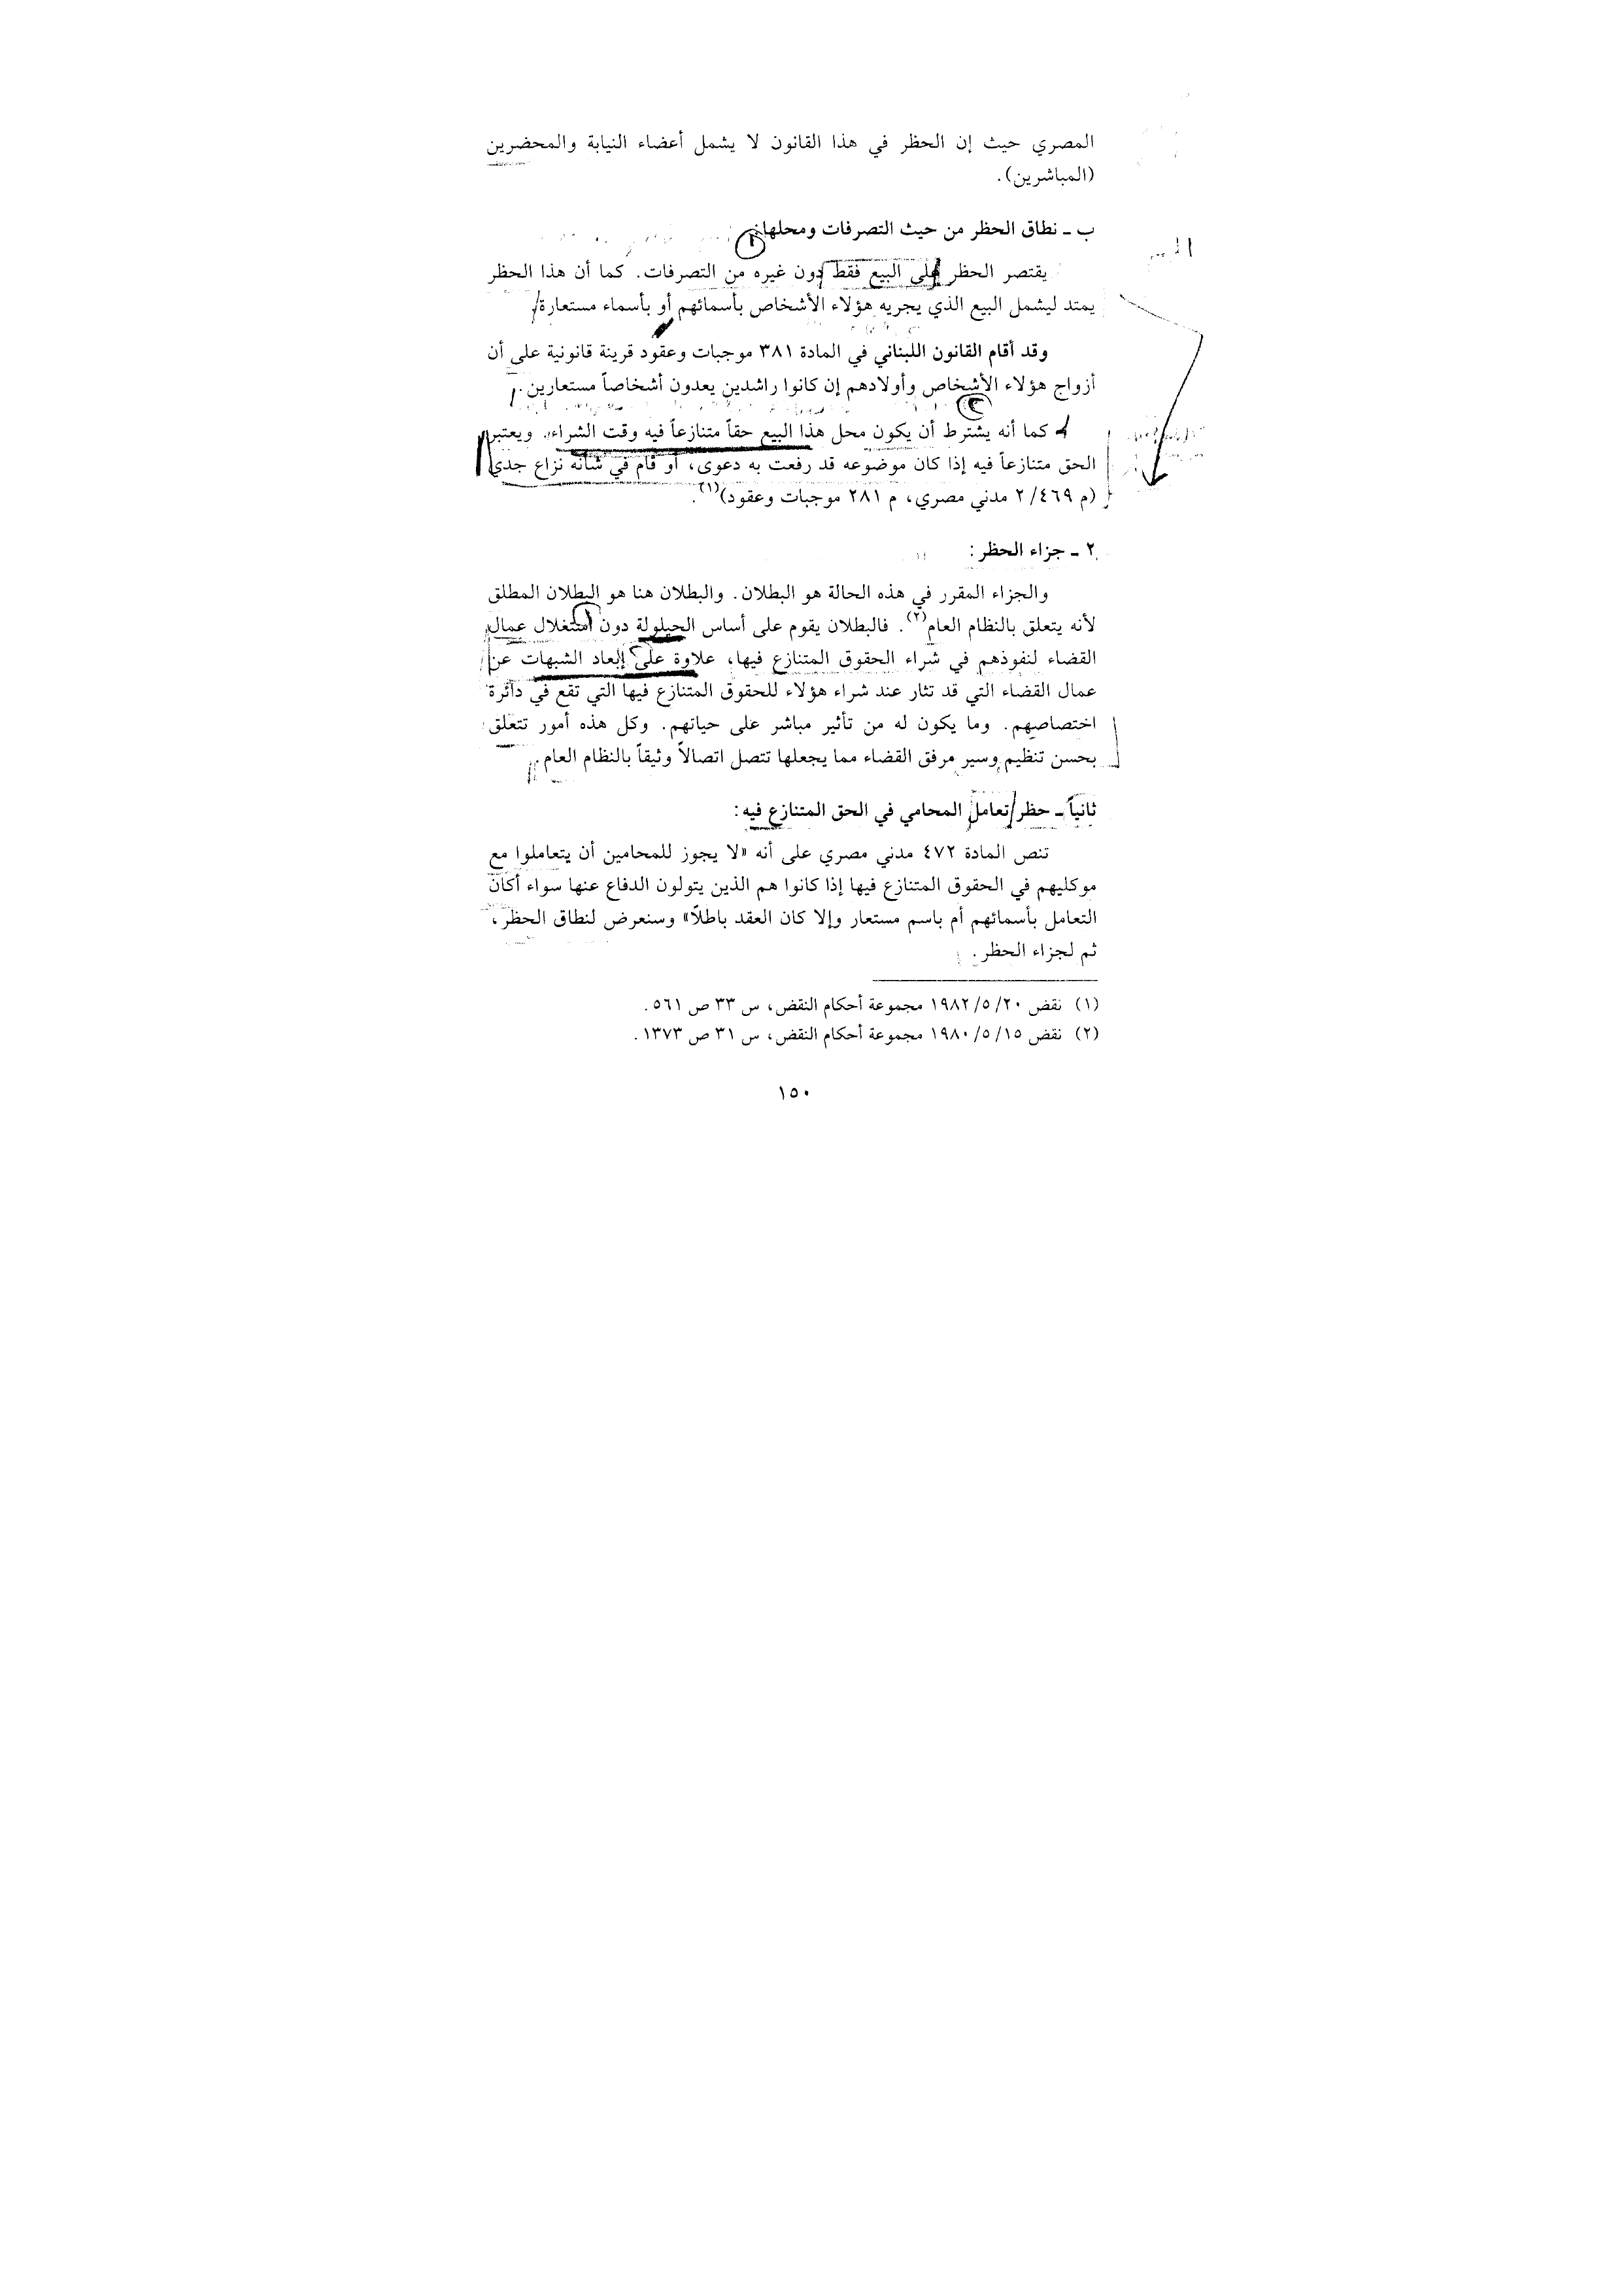 المصري حيث إن الحظر في هذا القانون لا يشمل أعضاء النيابة والمحضرين
(المباشرين).
ب ـ نطاق الحظر من حيث التصرفات ومحلها:
يقتصر الحظر على البيع فقط دون غيره من التصرفات. كما أن هذا الحظر
يمتد ليشمل البيع الذي يجريه هؤلاء الأشخاص بأسمائهم أو بأسماء مستعارة
وقد أقام القانون اللبناني في المادة ٣٨١ موجبات وعقود قرينة قانونية على أن
أزواج هؤلاء الأشخاص وأولادهم إن كانوا راشدين يعدون أشخاصاً مستعارين.
كما أنه يشترط أن يكون محل هذا البيع حقاً متنازعاً فيه وقت الشراء. ويعتبر
الحق متنازعاً فيه إذا كان موضوعه قد رفعت به دعوى، أو قام في شأنه نزاع جدي
(م ٢/٤٦٩ مدني مصري، م ٢٨١ موجبات وعقود)(١).
٢ ـ جزاء الحظر:
والجزاء المقرر في هذه الحالة هو البطلان. والبطلان هنا هو البطلان المطلق
لأنه يتعلق بالنظام العام(٢). فالبطلان يقوم على أساس الحيلولة دون استغلال عمال
القضاء لنفوذهم في شراء الحقوق المتنازع فيها، علاوة على إبعاد الشبهات عن
عمال القضاء التي قد تثار عند شراء هؤلاء للحقوق المتنازع فيها التي تقع في دائرة
اختصاصهم. وما يكون له من تأثير مباشر على حياتهم. وكل هذه أمور تتعلق
بحسن تنظيم وسير مرفق القضاء مما يجعلها تتصل اتصالاً وثيقاً بالنظام العام.
ثانياً ـ حظر تعامل المحامي في الحق المتنازع فيه:
تنص المادة ٤٧٢ مدني مصري على أنه «لا يجوز للمحامين أن يتعاملوا مع
موكليهم في الحقوق المتنازع فيها إذا كانوا هم الذين يتولون الدفاع عنها سواء أكان
التعامل بأسمائهم أم باسم مستعار وإلا كان العقد باطلاً» وسنعرض لنطاق الحظر،
ثم لجزاء الحظر.
(١) نقض ٢٠/٥/١٩٨٢ مجموعة أحكام النقض، س ٣٣ ص ٥٦١.
(٢) نقض ١٥/٥/١٩٨٠ مجموعة أحكام النقض، س ٣١ ص ١٣٧٣.
١٥٠